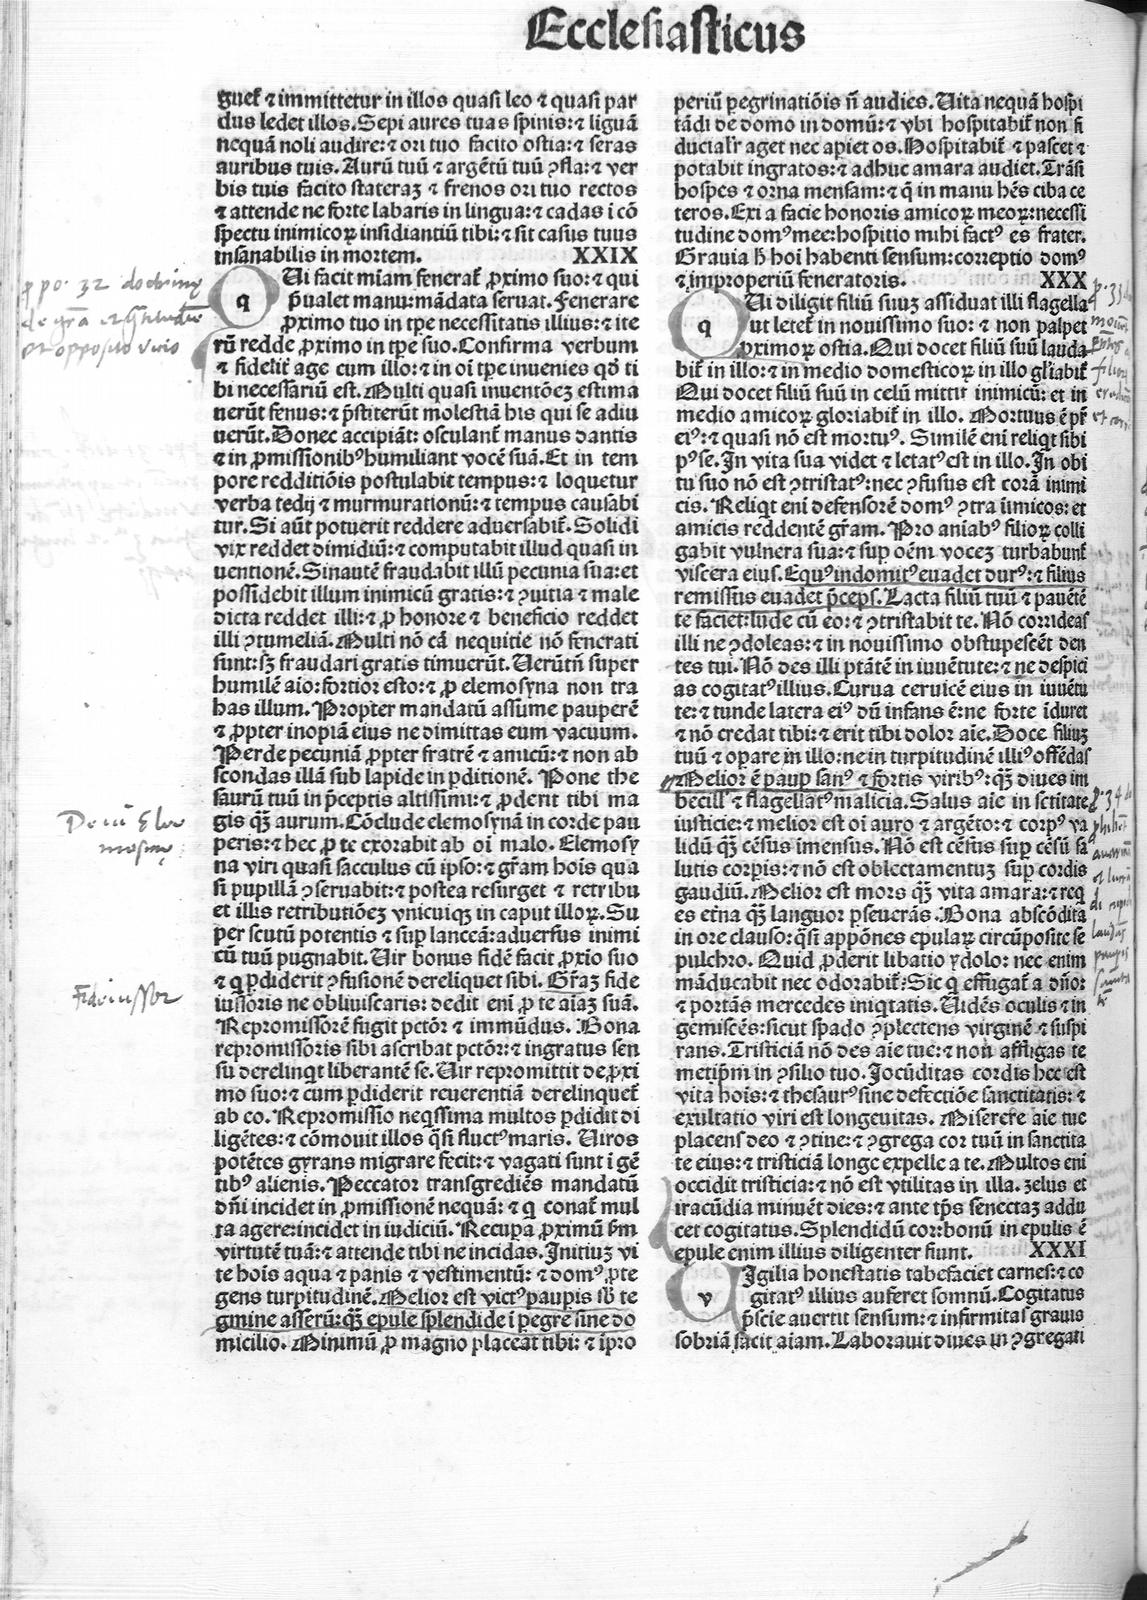 Ecclesiasticus
guet̃ ⁊ immittetur in illos quasi leo ⁊ quasi par
dus ledet illos. Sepi aures tuas spinis: ⁊ liguã
nequã noli audire: ⁊ ori tuo facito ostia: ⁊ seras
auribus tuis. Aurũ tuũ ⁊ argẽtũ tuũ ꝯfla: ⁊ ver
bis tuis facito stateraꝫ ⁊ frenos ori tuo rectos
⁊ attende ne forte labaris in lingua: ⁊ cadas i cõ
spectu inimicoꝝ insidiantiũ tibi: ⁊ sit casus tuus
insanabilis in mortem. XXIX
q Ui facit miam fenerat̃ ꝓximo suo: ⁊ qui
p̃ualet manu: mãdata seruat. Fenerare
ꝓximo tuo in tꝑe necessitatis illius: ⁊ ite
rũ redde ꝓximo in tꝑe suo. Confirma verbum
⁊ fidelit̃ age cum illo: ⁊ in oĩ tꝑe inuenies qď ti
bi necessariũ est. Multi quasi inuentõeꝫ estima
uerũt fenus: ⁊ p̃stiterũt molestiã his qui se adiu
uerũt. Donec accipiãt: osculant̃ manus dantis
⁊ in ꝓmissionibꝰ humiliant vocẽ suã. Et in tem
pore redditiõis postulabit tempus: ⁊ loquetur
verba tedij ⁊ murmurationũ: ⁊ tempus causabi
tur. Si aũt potuerit reddere aduersabit̃. Solidi
vix reddet dimidiũ: ⁊ computabit illud quasi in
uentionẽ. Sin autẽ fraudabit illũ pecunia sua: et
possidebit illum inimicũ gratis: ⁊ ꝯuitia ⁊ male
dicta reddet illi: ⁊ ꝓ honore ⁊ beneficio reddet
illi ꝯtumeliã. Multi nõ cã nequitie nõ fenerati
sunt: sꝫ fraudari gratis timuerũt. Uerũtñ super
humilẽ aio: fortior esto: ⁊ ꝓ elemosyna non tra
has illum. Propter mandatũ assume pauperẽ
⁊ ꝓpter inopiã eius ne dimittas eum vacuum.
Perde pecuniã ꝓpter fratrẽ ⁊ amicũ: ⁊ non ab
scondas illã sub lapide in ꝑditionẽ. Pone the
saurũ tuũ in p̃ceptis altissimi: ⁊ ꝓderit tibi ma
gis qꝫ̃ aurum. Cõclude elemosynã in corde pau
peris: ⁊ hec ꝓ te exorabit ab oi malo. Elemosy
na viri quasi sacculus cũ ipso: ⁊ gr̃am hois qua
si pupillã ꝯseruabit: ⁊ postea resurget ⁊ retribu
et illis retributiõeꝫ vnicuiqꝫ in caput illoꝝ. Su
per scutũ potentis ⁊ suꝑ lanceã: aduersus inimi
cũ tuũ pugnabit. Uir bonus fidẽ facit ꝓxio suo
⁊ q ꝑdiderit ꝯfusionẽ dereliquet sibi. Gr̃aꝫ fide
iussoris ne obliuiscaris: dedit eni ꝓ te aĩaꝫ suã.
Repromissorẽ fugit pctõr ⁊ immũdus. Bona
repromissoris sibi ascribat pctõr: ⁊ ingratus sen
su derelinqt liberantẽ se. Uir repromittit de ꝓxi
mo suo: ⁊ cum ꝑdiderit reuerentiã derelinquet̃
ab eo. Repromissio neqssima multos ꝑdidit di
ligẽtes: ⁊ cõmouit illos q̃si fluctꝰ maris. Uiros
potẽtes gyrans migrare fecit: ⁊ vagati sunt i gẽ
tibꝰ alienis. Peccator transgrediẽs mandatũ
dñi incidet in ꝓmissionẽ nequã: ⁊ q conat̃ mul
ta agere: incidet in iudiciũ. Recuꝑa ꝓximũ ẜm
virtutẽ tuã: ⁊ attende tibi ne incidas. Initiuꝫ vi
te hois aqua ⁊ panis ⁊ vestimentũ: ⁊ domꝰ ꝓte
gens turpitudinẽ. Melior est victꝰ pauꝑis sb̃ te
gmine asserũ: qꝫ̃ epule splendide i ꝑegre sine do
micilio. Minimũ ꝓ magno placeat tibi: ⁊ ĩpro
periũ ꝑegrinatiõis ñ audies. Uita nequã hospi
tãdi de domo in domũ: ⁊ vbi hospitabit̃ non fi
ducialr̃ aget nec aꝑiet os. Hospitabit̃ ⁊ pascet ⁊
potabit ingratos: ⁊ adhuc amara audiet. Trãsi
hospes ⁊ orna mensam: ⁊ q̃ in manu hẽs ciba ce
teros. Exi a facie honoris amicoꝝ meoꝝ: necessi
tudine domꝰ mee: hospitio mihi factꝰ es frater.
Grauia h̃ hoi habenti sensum: correptio domꝰ
⁊ improperiũ feneratoris. XXX
q Ui diligit filiũ suuꝫ assiduat illi flagella
ut letet̃ in nouissimo suo: ⁊ non palpet
ꝓximoꝝ ostia. Qui docet filiũ suũ lauda
bit̃ in illo: ⁊ in medio domesticoꝝ in illo gl̃iabit̃
Qui docet filiũ suũ in celũ mittit inimicũ: et in
medio amicoꝝ gloriabit̃ in illo. Mortuus ẽ pr̃
eiꝰ: ⁊ quasi nõ est mortuꝰ. Similẽ eni reliqt sibi
pꝰ se. In vita sua videt ⁊ letatꝰ est in illo. In obi
tu suo nõ est ꝯtristatꝰ: nec ꝯfusus est corã inimi
cis. Reliqt eni defensorẽ domꝰ ꝯtra iĩmicos: et
amicis reddentẽ gr̃am. Pro aniabꝰ filioꝝ colli
gabit vulnera sua: ⁊ suꝑ oẽm voceꝫ turbabunt̃
viscera eius. Equꝰ indomitꝰ euadet durꝰ: ⁊ filius
remissus euadet p̃ceps. Lacta filiũ tuũ ⁊ pauẽtẽ
te faciet: lude cũ eo: ⁊ ꝯtristabit te. Nõ corrideas
illi ne ꝯdoleas: ⁊ in nouissimo obstupescẽt den
tes tui. Nõ des illi ptãtẽ in iuuẽtute: ⁊ ne despici
as cogitatꝰ illius. Curua ceruicẽ eius in iuuẽtu
te: ⁊ tunde latera eiꝰ dũ infans ẽ: ne forte ĩduret
⁊ nõ credat tibi: ⁊ erit tibi dolor aĩe. Doce filiuꝫ
tuũ ⁊ oꝑare in illo: ne in turpitudinẽ illiꝰ offẽdas
Melior ẽ pauꝑ sanꝰ ⁊ fortis viribꝰ: qꝫ̃ diues im
becill̃ ⁊ flagellatꝰ malicia. Salus aĩe in sctitate
iusticie: ⁊ melior est oi auro ⁊ argẽto: ⁊ corpꝰ va
lidũ qꝫ̃ cẽsus imensus. Nõ est cẽsus suꝑ cẽsũ sa
lutis corꝑis: ⁊ nõ est oblectamentuꝫ suꝑ cordis
gaudiũ. Melior est mors qꝫ̃ vita amara: ⁊ req
es etña qꝫ̃ languor ꝑseuerãs. Bona abscõdita
in ore clauso: q̃si appõnes epulaꝝ circũposite se
pulchro. Quid ꝓderit libatio ydolo: nec enim
mãducabit nec odorabit̃: Sic q effugat̃ a dño:
⁊ portãs mercedes iniqtatis. Uidẽs oculis ⁊ in
gemiscẽs: sicut spado ꝯplectens virginẽ ⁊ suspi
rans. Tristiciã nõ des aĩe tue: ⁊ non affligas te
metipm̃ in ꝯsilio tuo. Jocũditas cordis hec est
vita hois: ⁊ thesaurꝰ sine defectiõe sanctitatis: ⁊
exultatio viri est longeuitas. Miserere aĩe tue
placens deo ⁊ ꝯtine: ⁊ ꝯgrega cor tuũ in sanctita
te eius: ⁊ tristiciã longe expelle a te. Multos eni
occidit tristicia: ⁊ nõ est vtilitas in illa. zelus et
iracũdia minuẽt dies: ⁊ ante tp̃s senectaꝫ addu
cet cogitatus. Splendidũ cor: bonũ in epulis ẽ
epule enim illius diligenter fiunt. XXXI
v Igilia honestatis tabefaciet carnes: ⁊ co
gitatꝰ illius auferet somnũ. Cogitatus
p̃scie auertit sensum: ⁊ infirmitas grauis
sobriã facit aĩam. Laborauit diues in ꝯgregati
Fideiussor